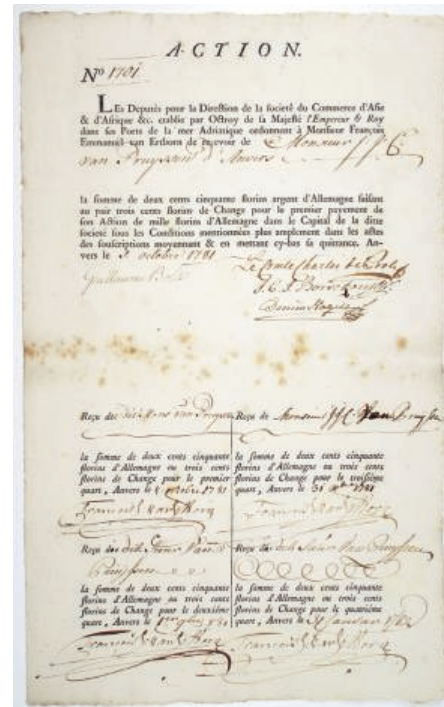 ACTION.
No 1701.
LEs Députés pour la Direction de la societé du Commerce d'Asie
& d'Afrique &c. établie par Octroy de sa Majesté l'Empereur & Roy
dans ses Ports de la mer Adriatique ordonnent à Monsieur François
Emmanuel van Ertborn de recevoir de Monsieur J. J. C.
van d'Anvers
la somme de deux cents cinquante florins argent d'Allemagne faisant
au pair trois cents florins de Change pour le premier payement de
son Action de mille florins d'Allemagne dans le Capital de la ditte
societé sous les Conditions mentionnées plus amplement dans les actes
des souscriptions moyennant & en mettant cy-bas sa quittance. An-
vers le octobre 1781
Le Comte Charles de Proli
Reçu du dit Mons van
la somme de deux cents cinquante
florins d'Allemagne ou trois cents
florins de Change pour le premier
quart, Anvers le 1781
Reçu de Monsieur J.J.C. Van
la somme de deux cents cinquante
florins d'Allemagne ou trois cents
florins de Change pour le troisième
quart, Anvers le 31 1781
Reçu du dit Van
la somme de deux cents cinquante
florins d'Allemagne ou trois cents
florins de Change pour le deuxième
quart, Anvers le
Reçu du dit Sieur Van
la somme de deux cents cinquante
florins d'Allemagne ou trois cents
florins de Change pour le quatrième
quart, Anvers le 31 Janvier 1782